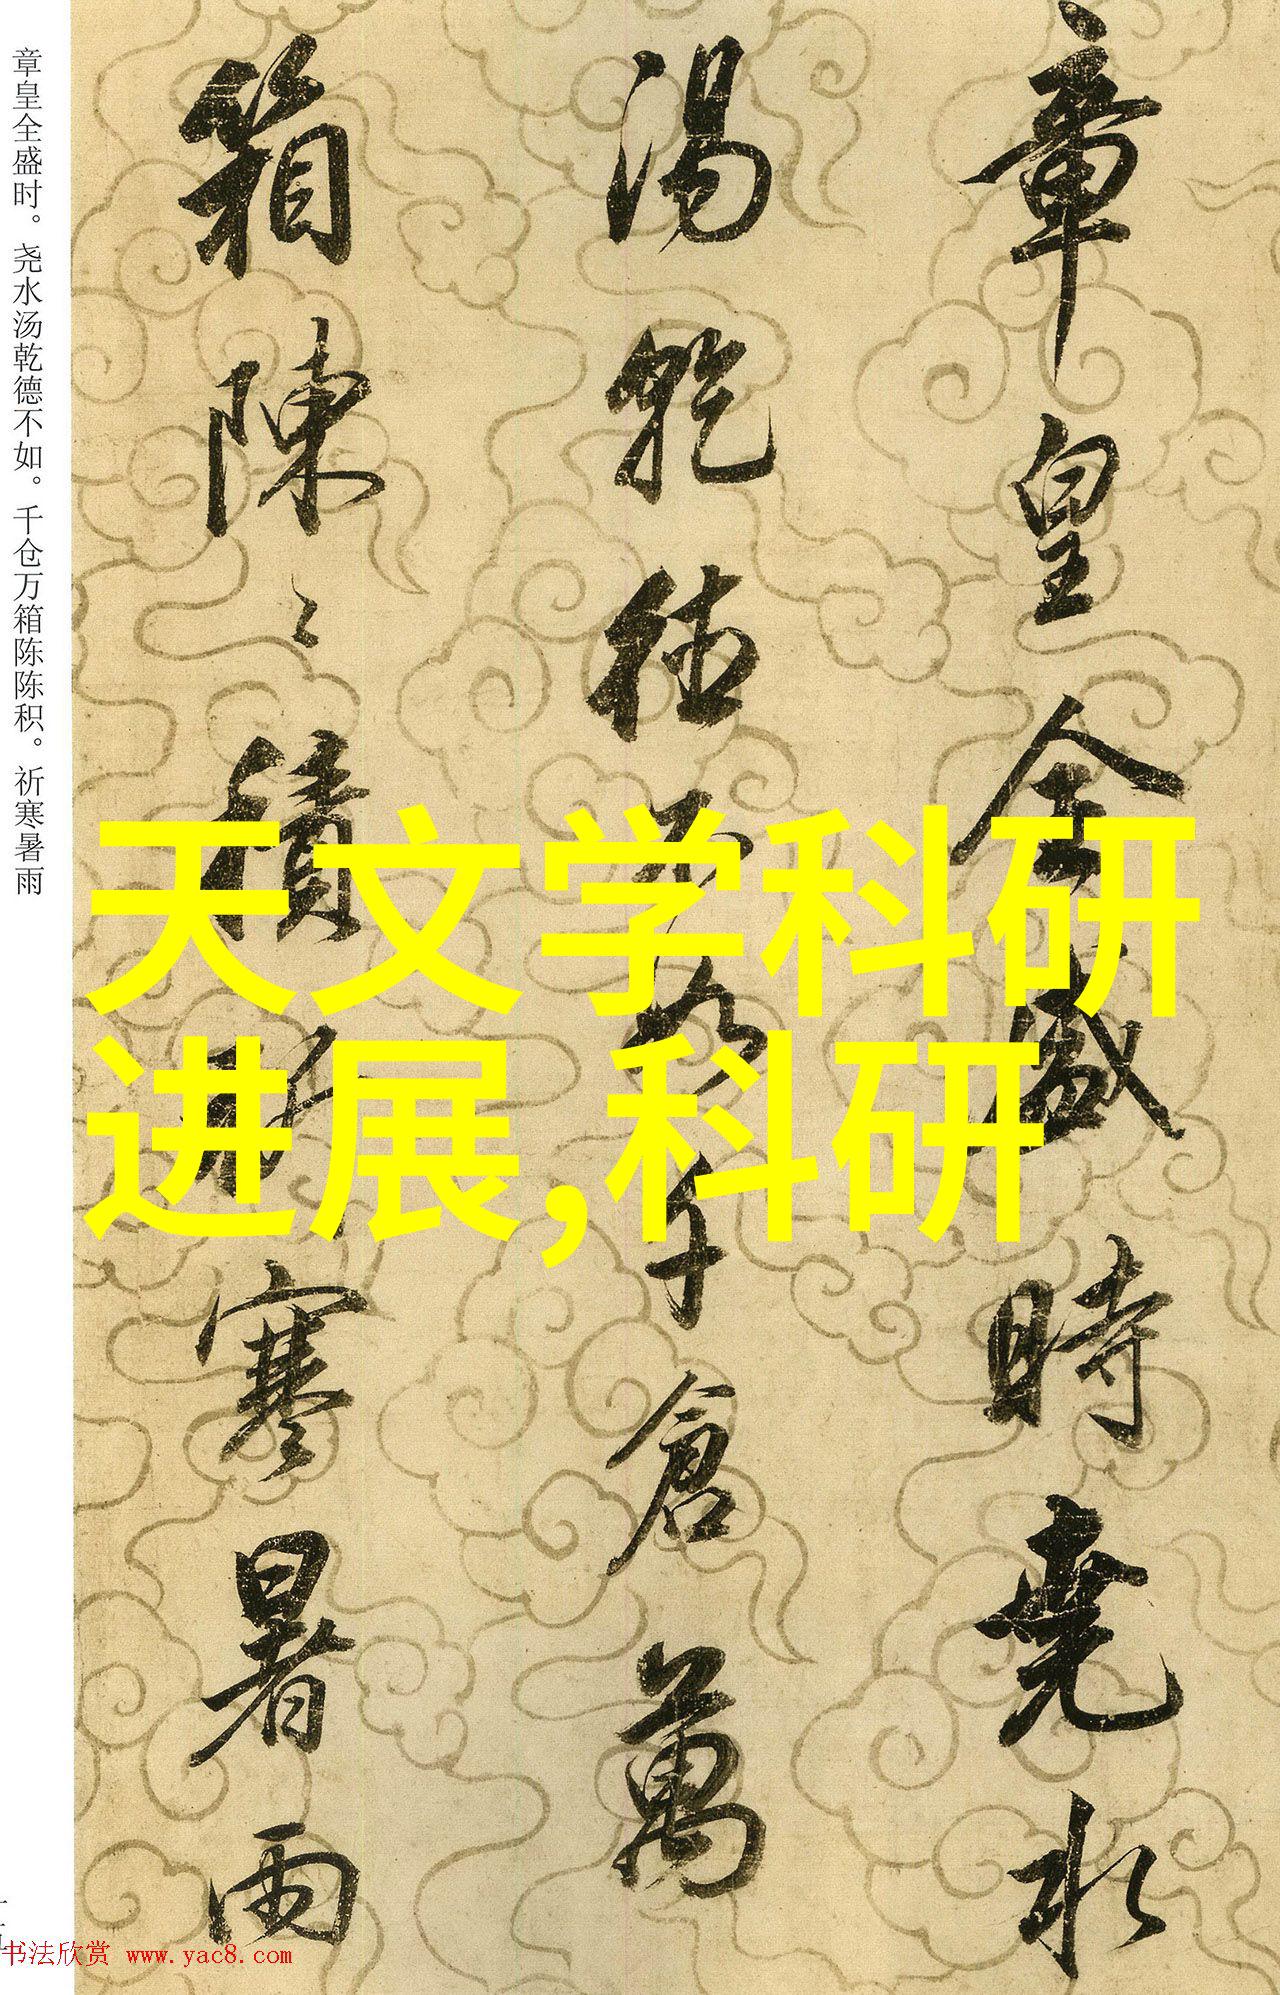 章皇全盛时。尧水汤乾德不如。千仓万箱陈陈积。祈寒暑雨
章皇全盛時堯水
湯乾德不如千倉萬
箱陳〻積祈寒暑雨
天文学科研
进展,科研
书法欣赏 www.yac8.com